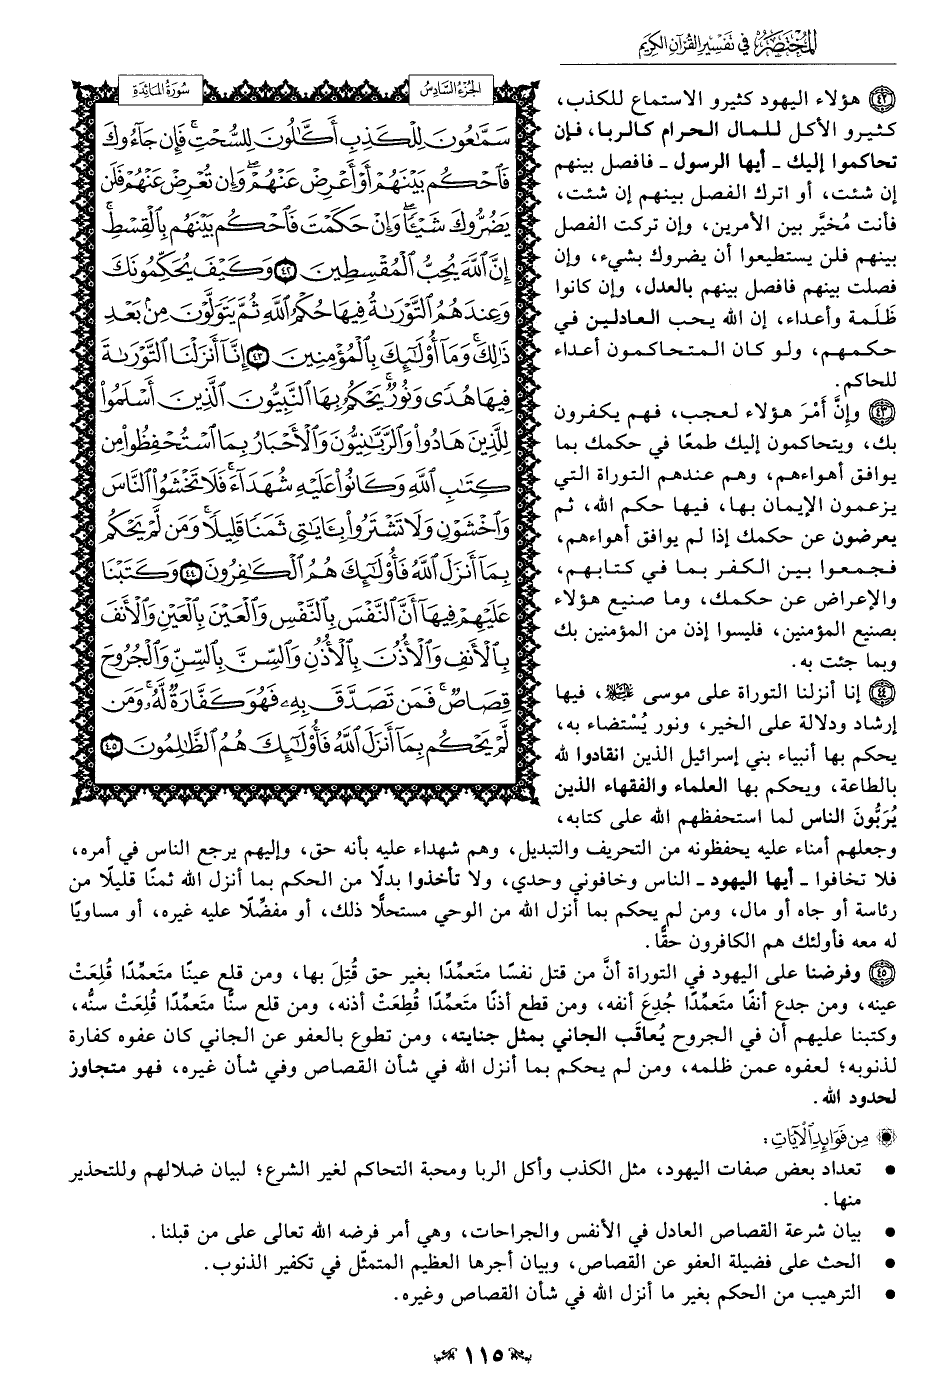 المختصر في تفسير القرآن الكريم
الجزء السادس
سورة المائدة
سَمَّٰعُونَ لِلۡكَذِبِ أَكَّٰلُونَ لِلسُّحۡتِۚ فَإِن جَآءُوكَ
فَٱحۡكُم بَيۡنَهُمۡ أَوۡ أَعۡرِضۡ عَنۡهُمۡۖ وَإِن تُعۡرِضۡ عَنۡهُمۡ فَلَن
يَضُرُّوكَ شَيۡـٔٗاۖ وَإِنۡ حَكَمۡتَ فَٱحۡكُم بَيۡنَهُم بِٱلۡقِسۡطِۚ
إِنَّ ٱللَّهَ يُحِبُّ ٱلۡمُقۡسِطِينَ ٤٢ وَكَيۡفَ يُحَكِّمُونَكَ
وَعِندَهُمُ ٱلتَّوۡرَىٰةُ فِيهَا حُكۡمُ ٱللَّهِ ثُمَّ يَتَوَلَّوۡنَ مِنۢ بَعۡدِ
ذَٰلِكَۚ وَمَآ أُوْلَٰٓئِكَ بِٱلۡمُؤۡمِنِينَ ٤٣ إِنَّآ أَنزَلۡنَا ٱلتَّوۡرَىٰةَ
فِيهَا هُدٗى وَنُورٞۚ يَحۡكُمُ بِهَا ٱلنَّبِيُّونَ ٱلَّذِينَ أَسۡلَمُواْ
لِلَّذِينَ هَادُواْ وَٱلرَّبَّٰنِيُّونَ وَٱلۡأَحۡبَارُ بِمَا ٱسۡتُحۡفِظُواْ مِن
كِتَٰبِ ٱللَّهِ وَكَانُواْ عَلَيۡهِ شُهَدَآءَۚ فَلَا تَخۡشَوُاْ ٱلنَّاسَ
وَٱخۡشَوۡنِ وَلَا تَشۡتَرُواْ بِـَٔايَٰتِي ثَمَنٗا قَلِيلٗاۚ وَمَن لَّمۡ يَحۡكُم
بِمَآ أَنزَلَ ٱللَّهُ فَأُوْلَٰٓئِكَ هُمُ ٱلۡكَٰفِرُونَ ٤٤ وَكَتَبۡنَا
عَلَيۡهِمۡ فِيهَآ أَنَّ ٱلنَّفۡسَ بِٱلنَّفۡسِ وَٱلۡعَيۡنَ بِٱلۡعَيۡنِ وَٱلۡأَنفَ
بِٱلۡأَنفِ وَٱلۡأُذُنَ بِٱلۡأُذُنِ وَٱلسِّنَّ بِٱلسِّنِّ وَٱلۡجُرُوحَ
قِصَاصٞۚ فَمَن تَصَدَّقَ بِهِۦ فَهُوَ كَفَّارَةٞ لَّهُۥۚ وَمَن
لَّمۡ يَحۡكُم بِمَآ أَنزَلَ ٱللَّهُ فَأُوْلَٰٓئِكَ هُمُ ٱلظَّٰلِمُونَ ٤٥
٤٢ هؤلاء اليهود كثيرو الاستماع للكذب،
كثيرو الأكل للمال الحرام كالربا، فإن
تحاكموا إليك ـ أيها الرسول ـ فافصل بينهم
إن شئت، أو اترك الفصل بينهم إن شئت،
فأنت مُخيَّر بين الأمرين، وإن تركت الفصل
بينهم فلن يستطيعوا أن يضروك بشيء، وإن
فصلت بينهم فافصل بينهم بالعدل، وإن كانوا
ظَلَمة وأعداء، إن الله يحب العادلين في
حكمهم، ولو كان المتحاكمون أعداء
للحاكم.
٤٣ وإنَّ أَمْرَ هؤلاء لعجب، فهم يكفرون
بك، ويتحاكمون إليك طمعًا في حكمك بما
يوافق أهواءهم، وهم عندهم التوراة التي
يزعمون الإيمان بها، فيها حكم الله، ثم
يعرضون عن حكمك إذا لم يوافق أهواءهم،
فجمعوا بين الكفر بما في كتابهم،
والإعراض عن حكمك، وما صنيع هؤلاء
بصنيع المؤمنين، فليسوا إذن من المؤمنين بك
وبما جئت به.
٤٤ إنا أنزلنا التوراة على موسى ﵇، فيها
إرشاد ودلالة على الخير، ونور يُسْتضاء به،
يحكم بها أنبياء بني إسرائيل الذين انقادوا لله
بالطاعة، ويحكم بها العلماء والفقهاء الذين
يُرَبُّونَ الناس لما استحفظهم الله على كتابه،
وجعلهم أمناء عليه يحفظونه من التحريف والتبديل، وهم شهداء عليه بأنه حق، وإليهم يرجع الناس في أمره،
فلا تخافوا ـ أيها اليهود ـ الناس وخافوني وحدي، ولا تأخذوا بدلًا من الحكم بما أنزل الله ثمنًا قليلًا من
رئاسة أو جاه أو مال، ومن لم يحكم بما أنزل الله من الوحي مستحلًّا ذلك، أو مفضِّلًا عليه غيره، أو مساويًا
له معه فأولئك هم الكافرون حقًّا.
٤٥ وفرضنا على اليهود في التوراة أنَّ من قتل نفسًا متَعمِّدًا بغير حق قُتِلَ بها، ومن قلع عينًا متَعمِّدًا قُلِعَتْ
عينه، ومن جدع أنفًا متَعمِّدًا جُدِعَ أنفه، ومن قطع أذنًا متَعمِّدًا قُطِعَتْ أذنه، ومن قلع سنًّا متَعمِّدًا قُلِعَتْ سنُّه،
وكتبنا عليهم أن في الجروح يُعاقَب الجاني بمثل جنايته، ومن تطوع بالعفو عن الجاني كان عفوه كفارة
لذنوبه؛ لعفوه عمن ظلمه، ومن لم يحكم بما أنزل الله في شأن القصاص وفي شأن غيره، فهو متجاوز
لحدود الله.
من فوائد الآيات:
• تعداد بعض صفات اليهود، مثل الكذب وأكل الربا ومحبة التحاكم لغير الشرع؛ لبيان ضلالهم وللتحذير
منها.
• بيان شرعة القصاص العادل في الأنفس والجراحات، وهي أمر فرضه الله تعالى على من قبلنا.
• الحث على فضيلة العفو عن القصاص، وبيان أجرها العظيم المتمثّل في تكفير الذنوب.
• الترهيب من الحكم بغير ما أنزل الله في شأن القصاص وغيره.
١١٥